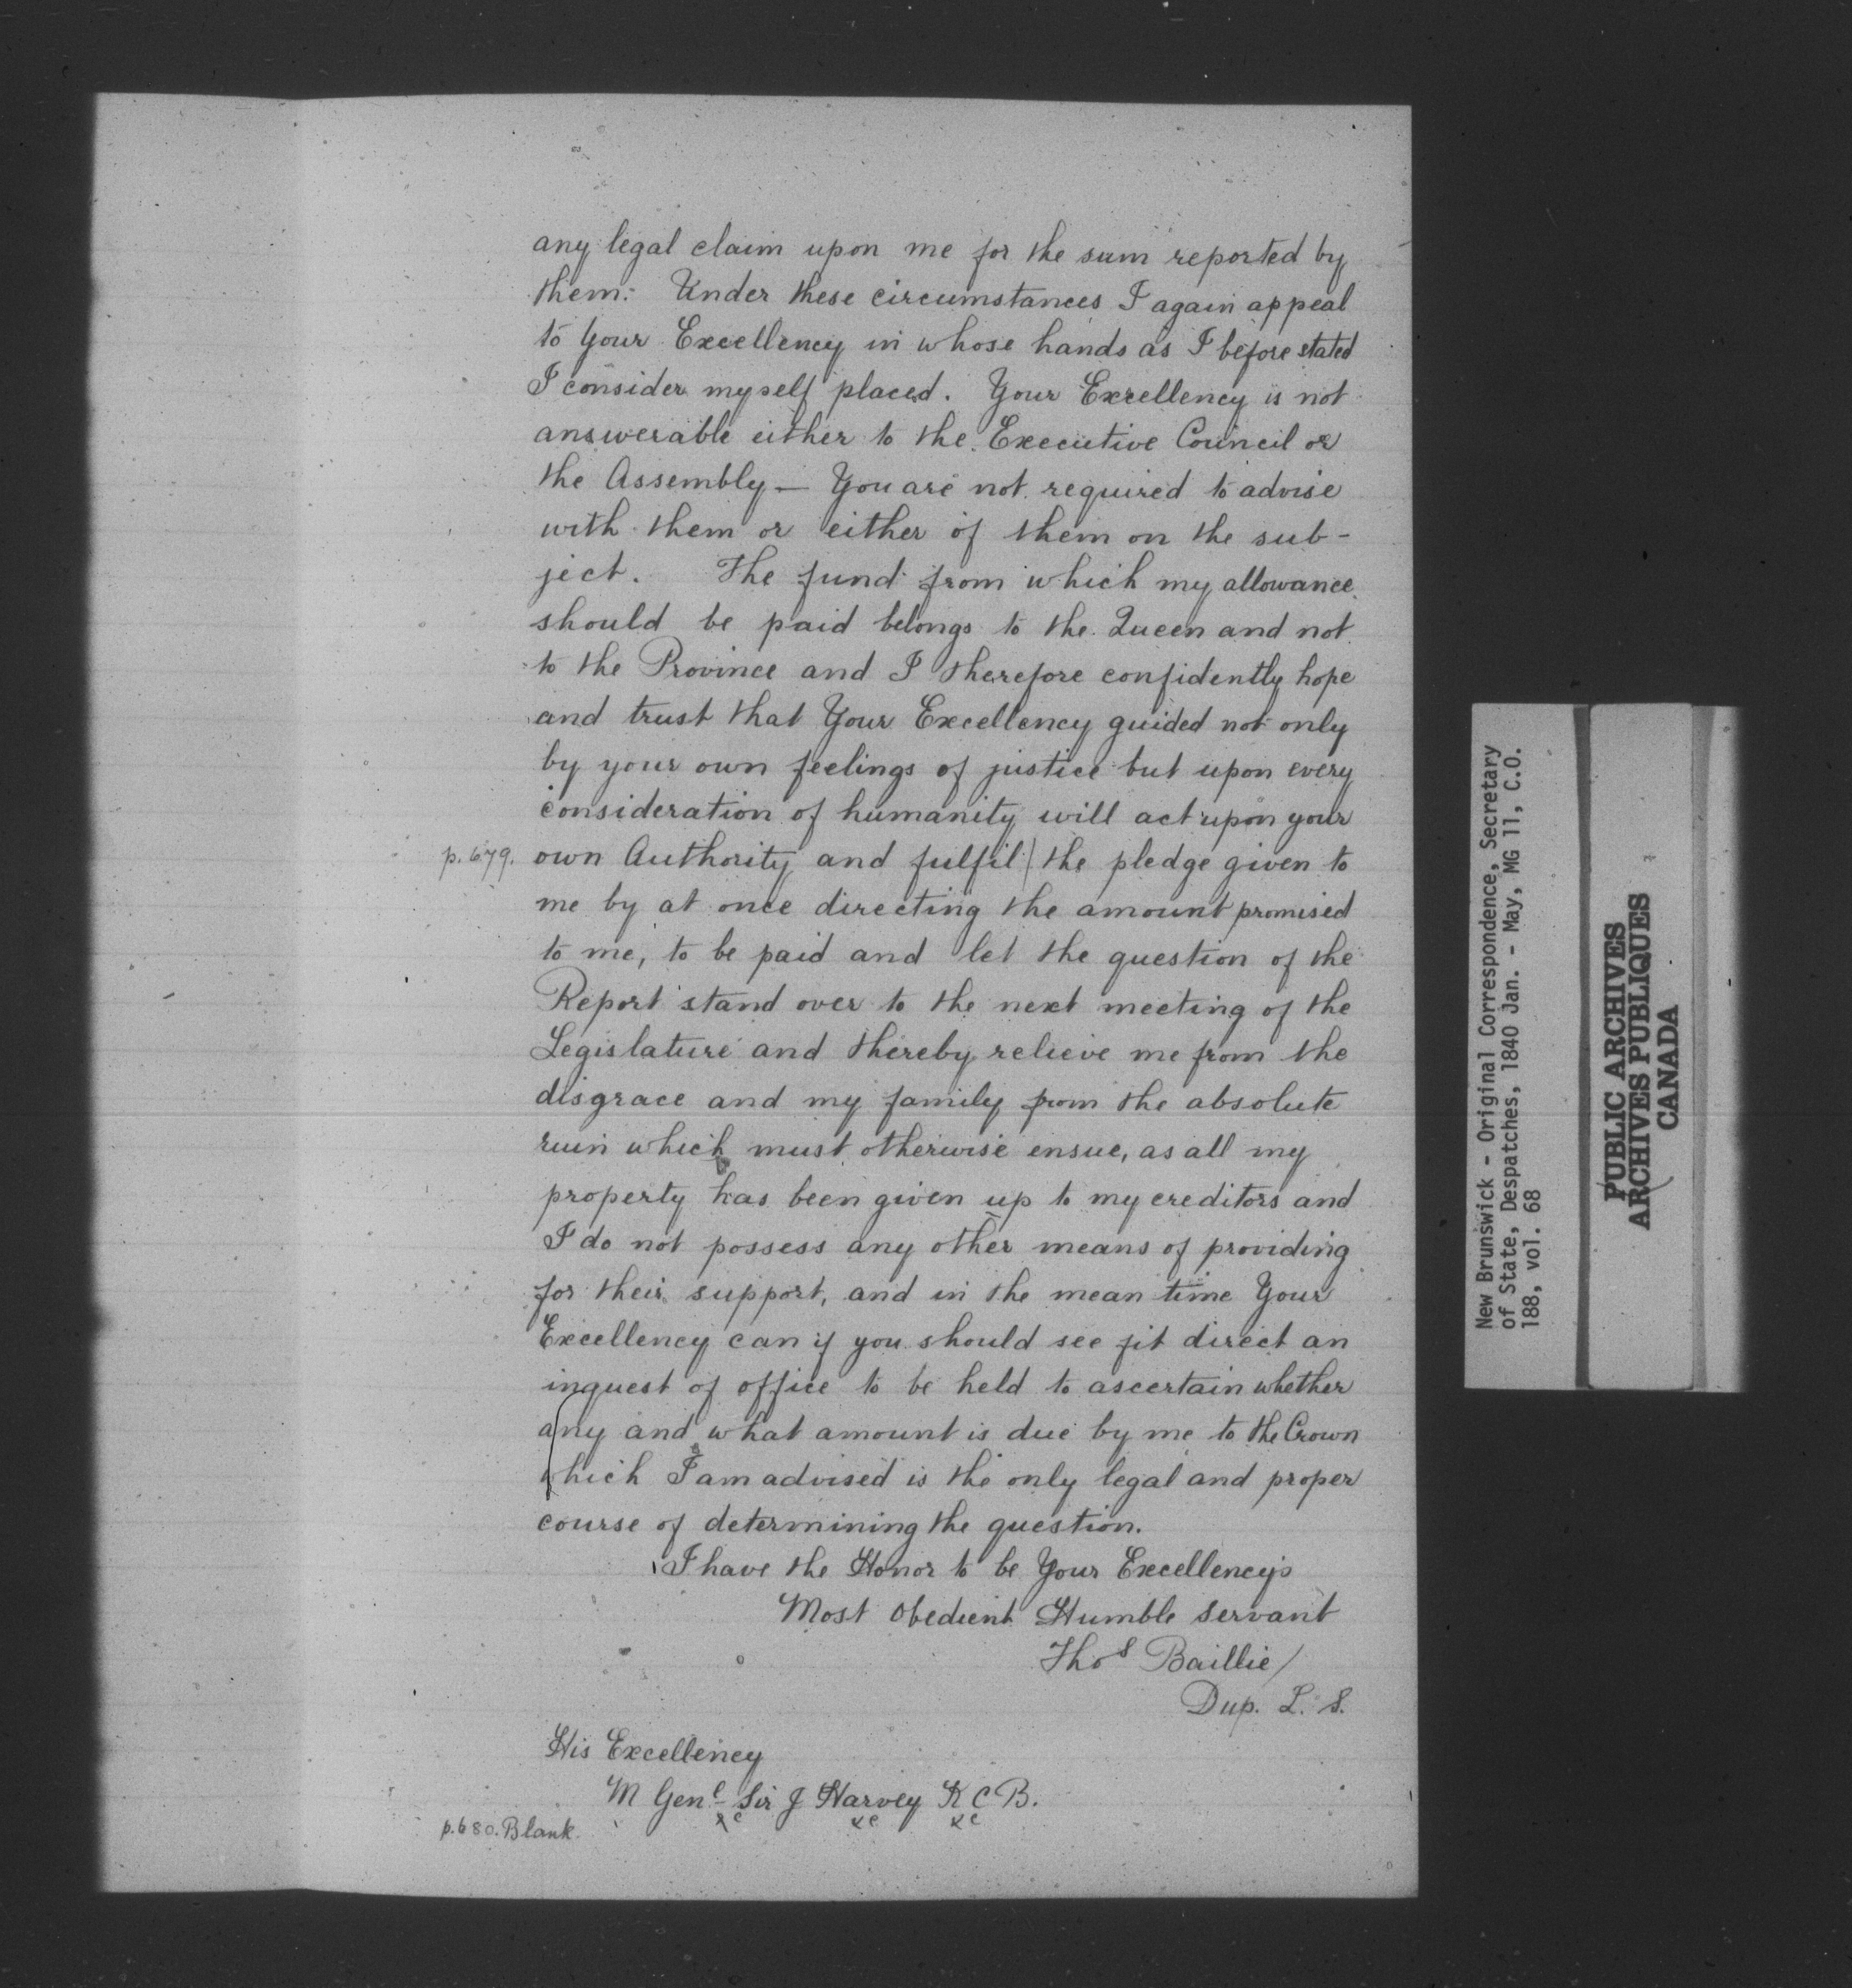 any legal claim upon me for the sum reported by
them: Under these circumstances I again appeal
to Your Excellency in whose hands as I before stated
I consider myself placed. Your Excellency is not
answerable either to the Executive Council or
the Assembly — You are not required to advise
with them or either of them on the sub-
ject. The fund from which my allowance
should be paid belongs to the Queen and not
to the Province and I therefore confidently hope
and trust that Your Excellency guided not only
by your own feelings of justice but upon every
consideration of humanity will act upon your
p. 679. own Authority and fulfil | the pledge given to
me by at once directing the amount promised
to me, to be paid and let the question of the
Report stand over to the next meeting of the
Legislature and thereby relieve me from the
disgrace and my family from the absolute
ruin which must otherwise ensue, as all my
property has been given up to my creditors and
I do not possess any other means of providing
for their support, and in the mean time Your
Excellency can if you should see fit direct an
inquest of office to be held to ascertain whether
any and what amount is due by me to the Crown
which I am advised is the only legal and proper
course of determining the question.
I have the Honor to be Your Excellency's
Most Obedient Humble Servant
Thos Baillie/
Dup. L. S.
His Excellency
M Genl Sir J Harvey K C B.
&c &c &c
p. 680. Blank.
New Brunswick - Original Correspondence, Secretary
of State, Despatches, 1840 Jan. - May, MG 11, C.O.
188, vol. 68
PUBLIC ARCHIVES
ARCHIVES PUBLIQUES
CANADA